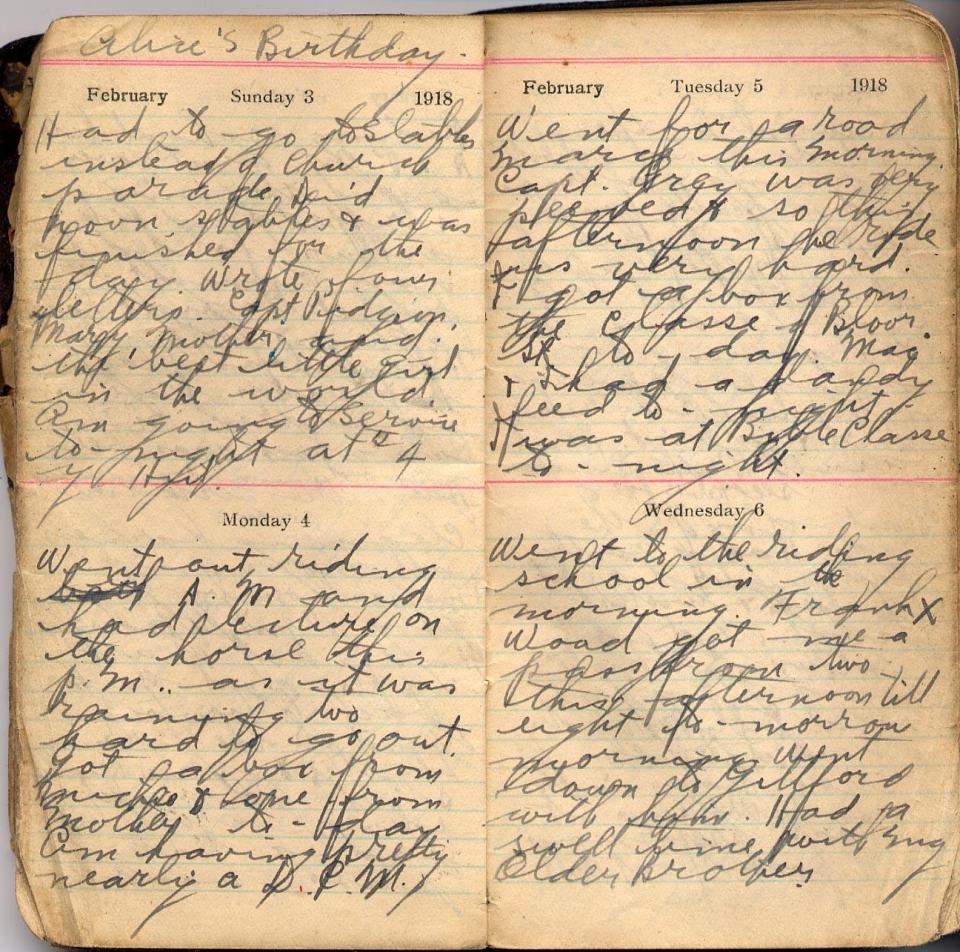 Alice's Birthday.
February Sunday 3 1918
Had to go to Stables
instead of Church
parade. Did
noon stables & was
finished for the
day. Wrote four
letters. Capt Pidgeon,
Mary, Mother and
the best little girl
in the world.
Am going to Service
to-night at 4
Y Hut.
Monday 4
Went out riding
A. M and
had lecture on
the horse this
p.m.. as it was
raining too
hard to go out.
Got a box from
& one from
Mother to-day
Am having pretty
nearly a D.C.M.
February Tuesday 5 1918
Went for a road
march this morning.
Capt. Grey was very
peeved & so this
afternoon he rode
us very hard.
I got a box from
the Classe of Bloor
St. to-day. Mac
& I had a dandy
feed to-night.
I was at Bible Classe
to-night.
Wednesday 6
Went to the riding
school in the
morning. Frank X
Wood got me a
pass from two
this afternoon till
eight to-morrow
morning. Went
down to Gillford
with him. Had a
swell time with my
Elder Brother